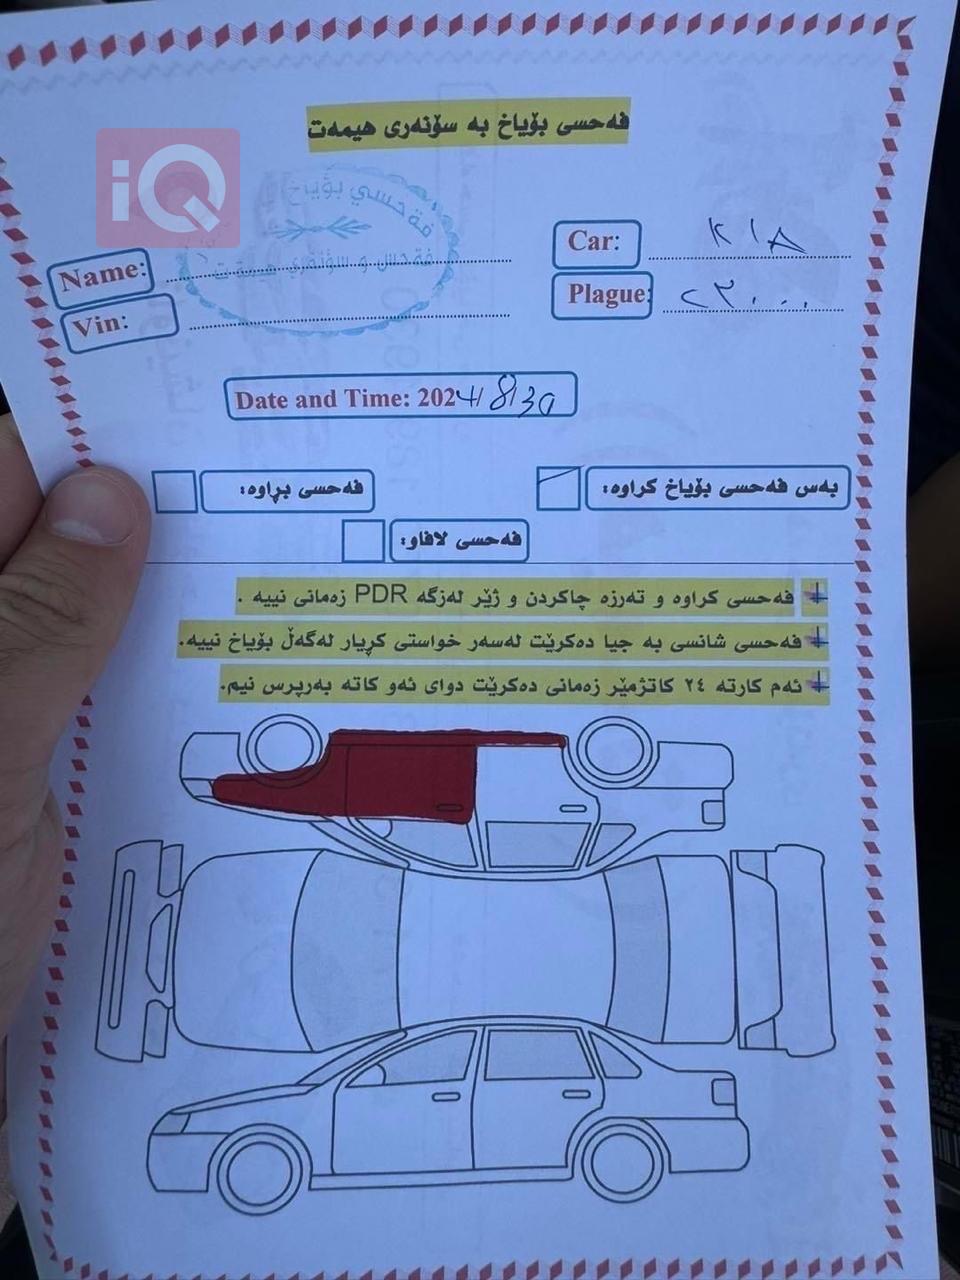 فەحسی بۆیاخ بە سۆنەری هیمەت
iQ
فەحسي بۆیاخ
فەحس و سۆنەری هیمەت
Name:
Car: KIA
Vin:
Plague:
Date and Time: 2024/8/30
بەس فەحسی بۆیاخ کراوە:
فەحسی بڕاوە:
فەحسی لافاو:
فەحسی کراوە و تەرزە چاکردن و ژێر لەزگە PDR زەمانی نییە .
فەحسی شانسی بە جیا دەکرێت لەسەر خواستی کڕیار لەگەڵ بۆیاخ نییە.
ئەم کارتە ٢٤ کاتژمێر زەمانی دەکرێت دوای ئەو کاتە بەرپرس نیم.